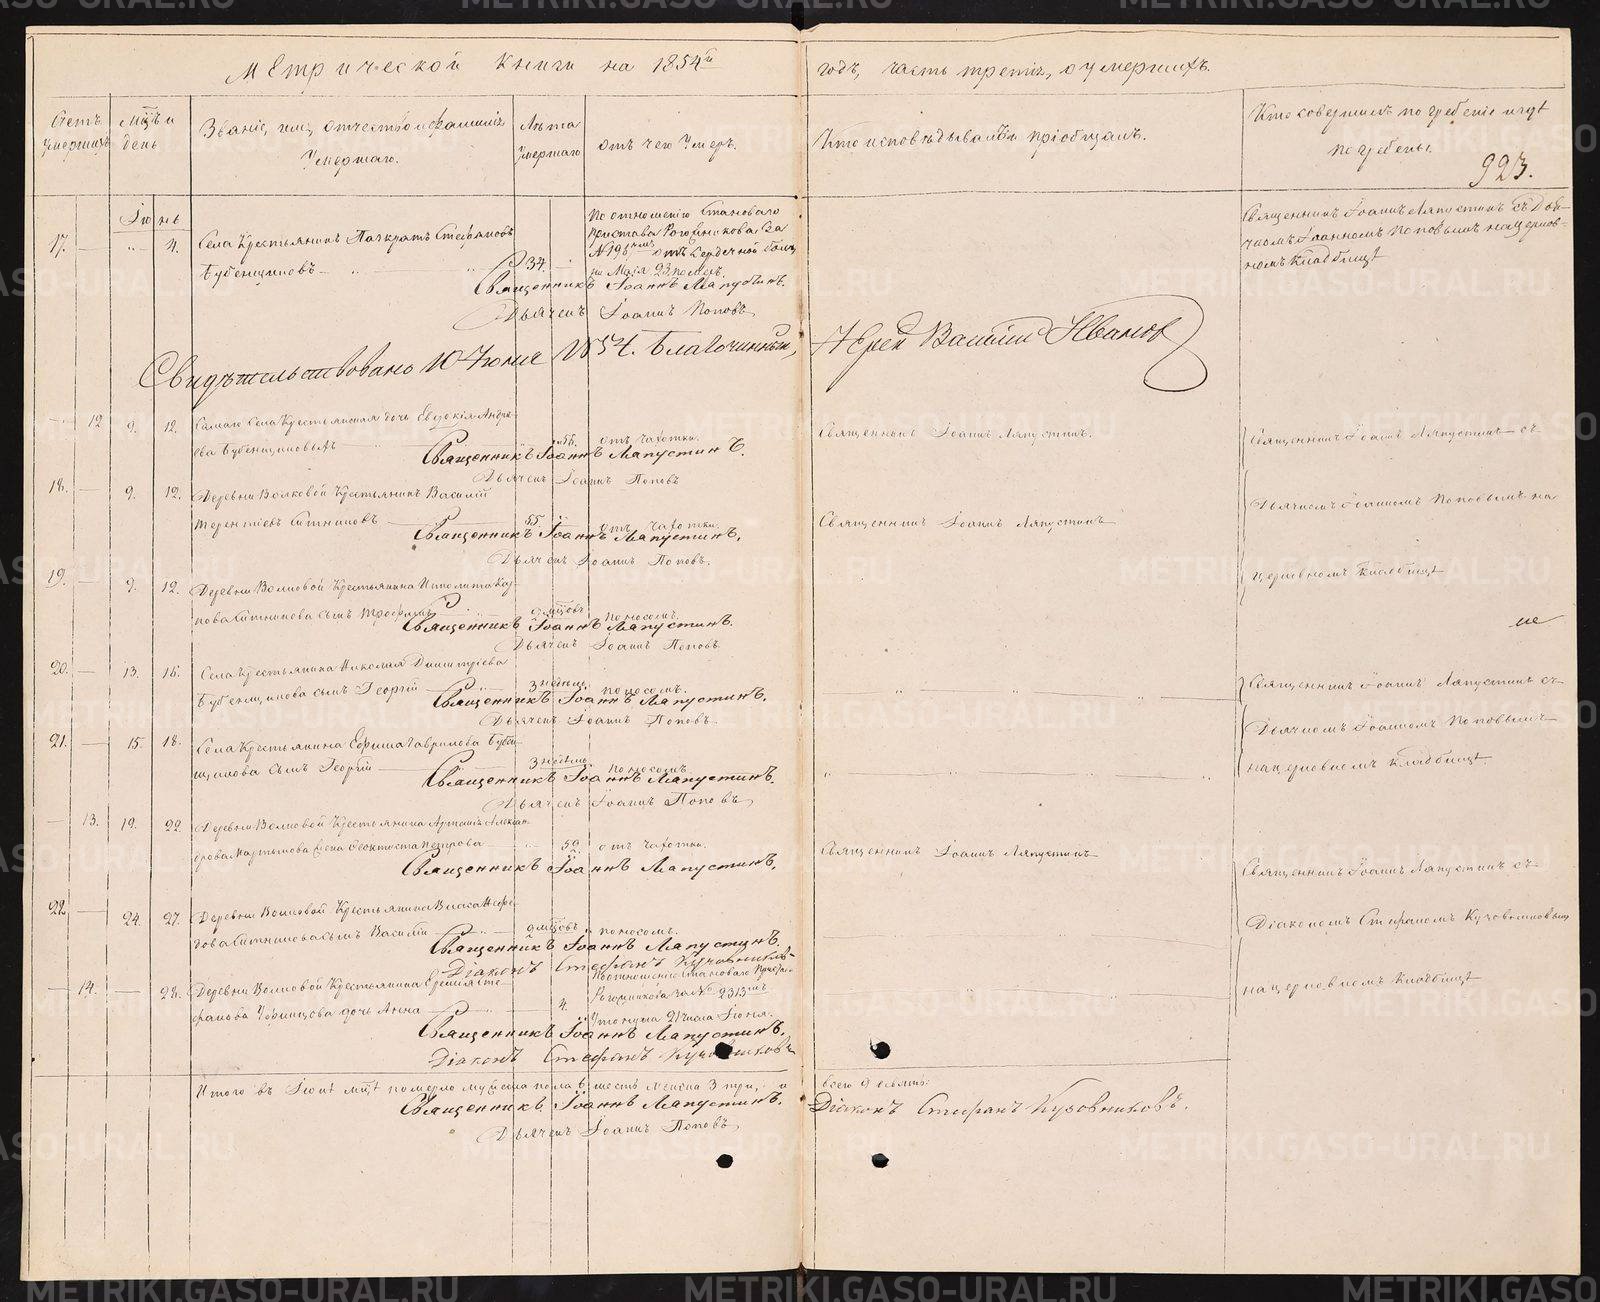 Метрической книги на 1854й годъ, часть третія, о умершихъ.
Счетъ умершихъ
Мцъ и день
Званіе, имя, отчество и фамилія умершаго.
Лѣта умершаго
отъ чего умеръ.
Кто исповѣдывалъ и пріобщалъ.
Кто совершалъ погребеніе и гдѣ погребены.
923.
Іюнь
17. 4. Села крестьянинъ Панкратъ Стефановъ
Бубенщиковъ 34.
По отношенію Становаго
пристава Рогожникова за
№ 196 отъ сердечной болѣзни
Мая 23 померъ.
Священникъ Іоаннъ Ляпустинъ съ Дьячкомъ Іоанномъ Поповымъ на церковномъ кладбищѣ
Священникъ Іоаннъ Ляпустинъ.
Дьячекъ Іоаннъ Поповъ
Свидѣтельствовано 10 Іюня 1854. Благочинный, Іерей Василій Ивановъ
12 9. 12. Самаго села крестьянская дочь Евдокія Андреева Бубенщиковыхъ 56. отъ чахотки.
Священникъ Іоаннъ Ляпустинъ.
Священникъ Іоаннъ Ляпустинъ съ
Священникъ Іоаннъ Ляпустинъ.
Дьячекъ Іоаннъ Поповъ
18. 9. 12. Деревни Волковой крестьянинъ Василій
Терентіевъ Ситниковъ 55. отъ чахотки.
Священникъ Іоаннъ Ляпустинъ
Дьячкомъ Іоанномъ Поповымъ на
Священникъ Іоаннъ Ляпустинъ.
Дьячекъ Іоаннъ Поповъ.
19. 9. 12. Деревни Волковой крестьянина Ипполита
Ситникова сынъ Трофимъ мцовъ поносомъ.
церковномъ кладбищѣ
Священникъ Іоаннъ Ляпустинъ.
Дьячекъ Іоаннъ Поповъ
20. 13. 16. Села крестьянина Николая Димитріева
Бубенщикова сынъ Георгій 3 недѣль поносомъ.
Священникъ Іоаннъ Ляпустинъ съ
Священникъ Іоаннъ Ляпустинъ.
Дьячекъ Іоаннъ Поповъ.
Дьячкомъ Іоанномъ Поповымъ
21. 15. 18. Села крестьянина Ефима Гаврилова Бубенщикова сынъ Георгій 3 недѣль поносомъ
на церковномъ кладбищѣ.
Священникъ Іоаннъ Ляпустинъ.
Дьячекъ Іоаннъ Поповъ
13. 19. 22. Деревни Волковой крестьянина
Мартынова жена Феоктиста Петрова 59. отъ чахотки.
Священникъ Іоаннъ Ляпустинъ
Священникъ Іоаннъ Ляпустинъ съ
Священникъ Іоаннъ Ляпустинъ.
22. 24. 27. Деревни Волковой крестьянина Власа
Ситникова сынъ Василій мцовъ поносомъ.
Діакономъ Стефаномъ Кузовниковымъ
Священникъ Іоаннъ Ляпустинъ.
Діаконъ Стефанъ Кузовниковъ
14. 28. Деревни Волковой крестьянина
дочь Анна 4.
По отношенію Становаго Пристава
Рогожникова за № 2313
утонула 21 числа Іюня.
на церковномъ кладбищѣ
Священникъ Іоаннъ Ляпустинъ.
Діаконъ Стефанъ Кузовниковъ
Итого въ Іюнѣ мцѣ померло мужеска пола 6 шесть женска 3 три, а всего 9 девять.
Священникъ Іоаннъ Ляпустинъ. Діаконъ Стефанъ Кузовниковъ.
Дьячекъ Іоаннъ Поповъ
METRIKI.GASO-URAL.RU